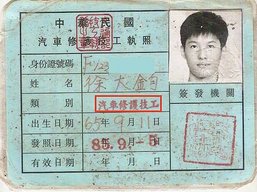 中華民國
汽車修護技工執照
身份證號碼 F123
姓名 徐大
類別 汽車修護技工
出生日期 65年9月11日
發照日期 85.9.-5
有效日期 年 月 日
簽發機關